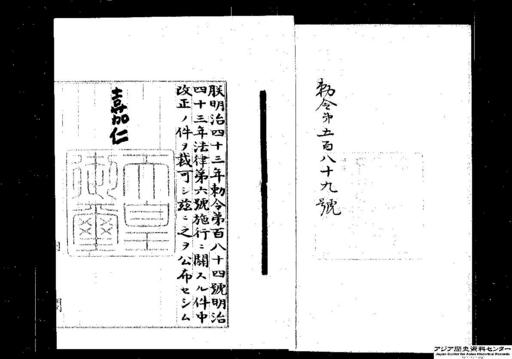 勅令第五百八十九號
朕明治四十三年勅令第百八十四號明治
四十三年法律第六號施行ニ關スル件中
改正ノ件ヲ裁可シ茲ニ之ヲ公布セシム
嘉仁
天皇
御璽
アジア歴史資料センター
Japan Center for Asian Historical Records